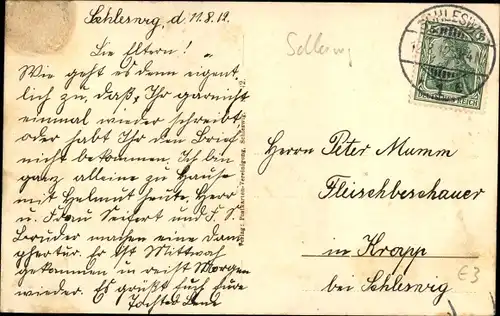 Schleswig, d. 11.8.12.
Lie Eltern!
Wie geht es denn eigent
lich zu, daß Ihr garnicht
einmal wieder schreibt
oder habt Ihr den Brief
nicht bekommen. Ich bin
ganz alleine zu Hause
mit Helmut heute. Herr
u. Frau Seifert und F. S.
Bruder machen eine Dam
pfertur. Er ist Mittwoch
gekommen u. reist Morgen
wieder. Es grüßt Euch Eure
Tochter
Verlag: Postkarten-Vereinigung, Schleswig.
Schleswig
SCHLESWIG
DEUTSCHES REICH
Herrn Peter Mumm
Fleischbeschauer
in Kropp
bei Schleswig
E3